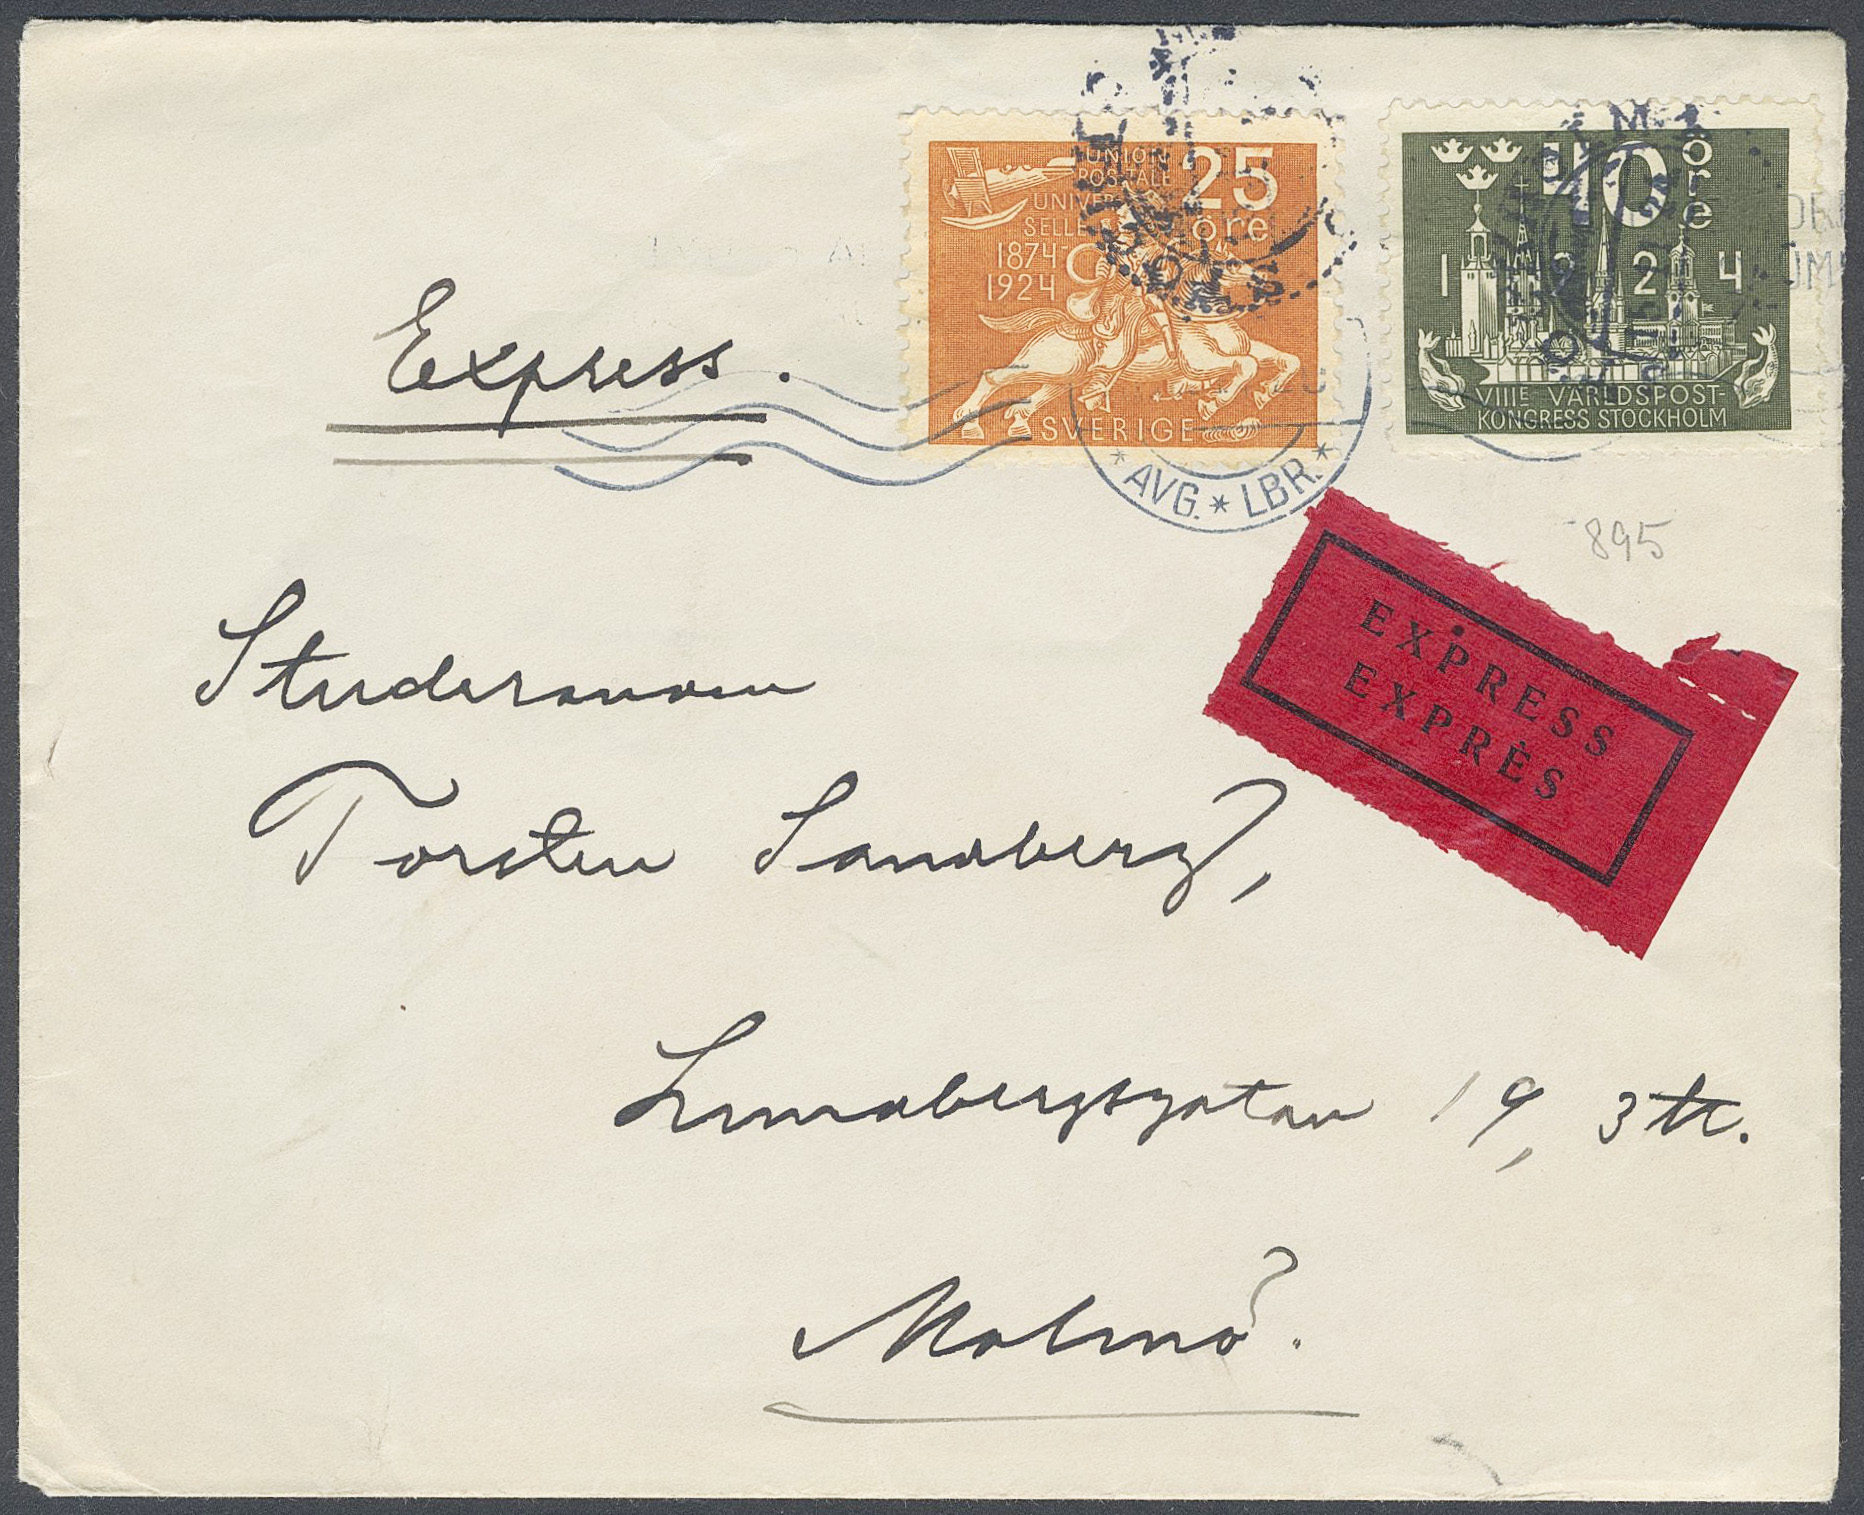 UNION
POSTALE
UNIVER
SELLE
1874-
1924
25
öre
SVERIGE
40
öre
1 9 2 4
VIIIE VÄRLDSPOST-
KONGRESS STOCKHOLM
* AVG. * LBR. *
Express.
895
EXPRESS
EXPRÈS
Studeranden
Torsten Sandberg,
Lundbergsgatan 19, 3 tr.
Malmö.